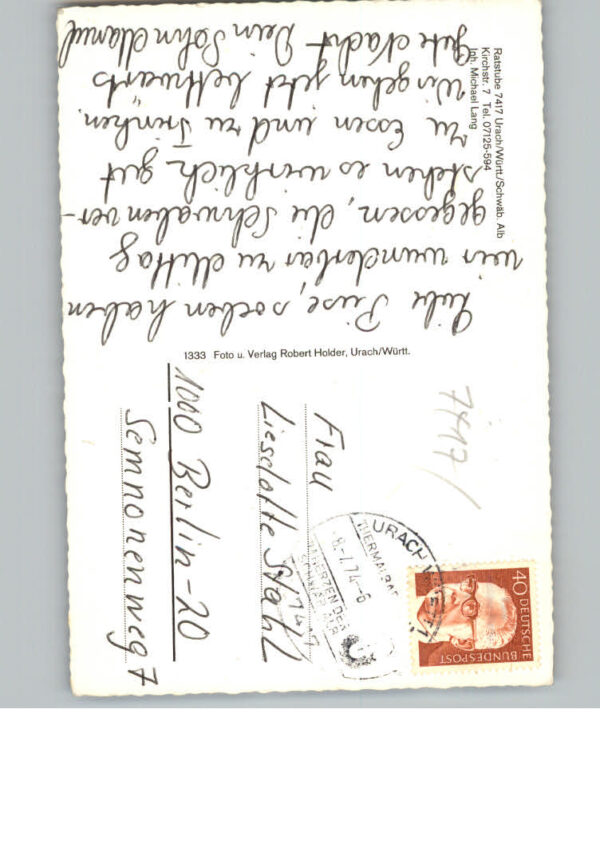 Ratstube 7417 Urach/Württ./Schwäb. Alb
Kirchstr. 7 Tel. 07125-594
Inh. Michael Lang
Liebe soeben haben
wir wunderbar zu Mittag
gegessen, die Schwaben ver-
stehen es wirklich gut
zu Essen und zu Trinken.
Wir gehen jetzt bettwärts
Gute Nacht Dein Sohn Manuel
1333 Foto u. Verlag Robert Holder, Urach/Württ.
7417/
Frau
Lieselotte Stahl
1000 Berlin-20
Semnonenweg 7
URACH
THERMALBAD
-8.-7.74-6
IM HERZEN DER
SCHWÄB. ALB
40 DEUTSCHE
BUNDESPOST